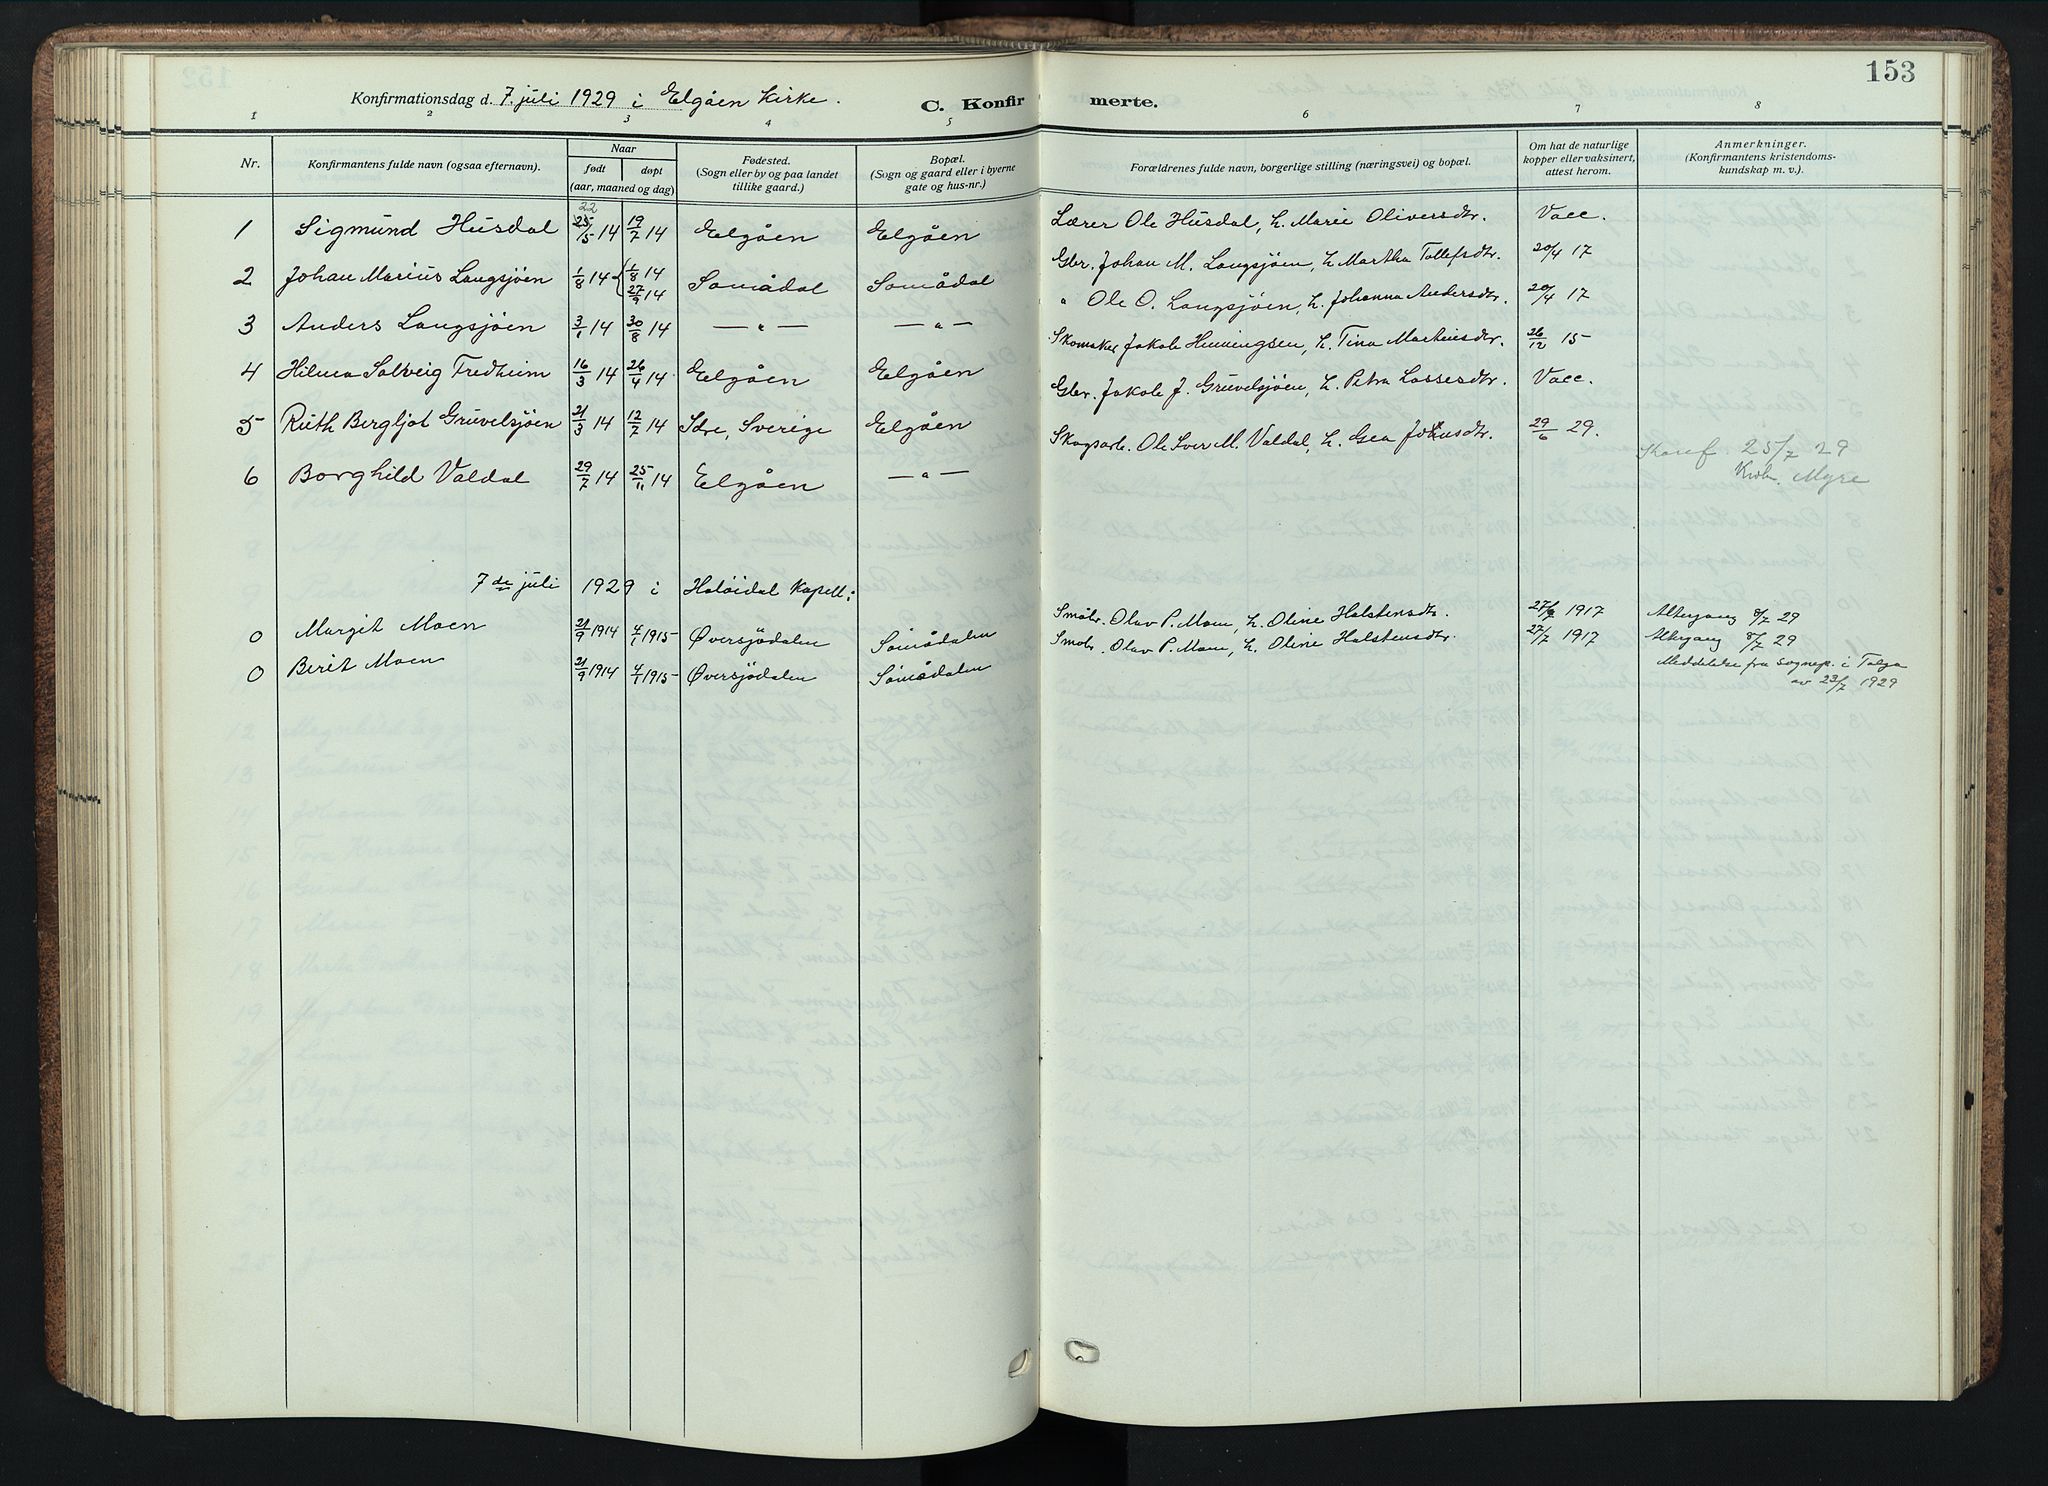 153
Konfirmationsdag d. 7. juli 1929 i Elgåen Kirke.
C. Konfirmerte.
1 2 3 4 5 6 7 8
Nr.
Konfirmantens fulde navn (ogsaa efternavn).
Naar
født døpt
(aar, maaned og dag)
Fødested.
(Sogn eller by og paa landet
tillike gaard.)
Bopæl.
(Sogn og gaard eller i byerne
gate og hus-nr.)
Forældrenes fulde navn, borgerlige stilling (næringsvei) og bopæl.
Om hat de naturlige
kopper eller vaksinert,
attest herom.
Anmerkninger.
(Konfirmantens kristendoms-
kundskap m. v.)
22
1 Sigmund Husdal 25/5 14 19/7 14 Elgåen Elgåen Lærer Ole Husdal, h. Marie Oliversdtr. Vacc.
2 Johan Marius Langsjöen 1/8 14 { 1/8 14 27/9 14 Sømådal Sømådal Gbr. Johan M. Langsjöen, h. Martha Tollefsdtr. 20/4 17
3 Anders Langsjöen 3/1 14 30/8 14 — " — — " — " Ole O. Langsjöen, h. Johanna Andersdtr. 20/4 17
4 Hilma Solveig Fredheim 16/3 14 26/4 14 Elgåen Elgåen Skomaker Jakob Henningsen, h. Tina Martinsdtr. 26/12 15
5 Ruth Bergljot Gruvelsjöen 21/3 14 12/7 14 Idre, Sverige Elgåen Gbr. Jakob J. Gruvelsjöen, h. Petra Lassesdtr. Vacc.
6 Borghild Valdal 29/7 14 25/11 14 Elgåen — " — Skogsarb. Ole Iver M. Valdal, h. Gea Johnsdtr. 29/6 29. Konf. 25/7 29
Myre
7de juli 1929 i Holøidal Kapell:
0 Margit Moen 21/9 1914 4/1 1915 Øversjødalen Sømådalen Småbr. Olav P. Moen, h. Oline Halstensdtr. 27/7 1917 Altergang 8/7 29
0 Berit Moen 21/9 1914 4/1 1915 Øversjødalen Sømådalen Småbr. Olav P. Moen, h. Oline Halstensdtr. 27/7 1917 Altergang 8/7 29
Meddelelse fra sognep. i Tolga
av 23/7 1929